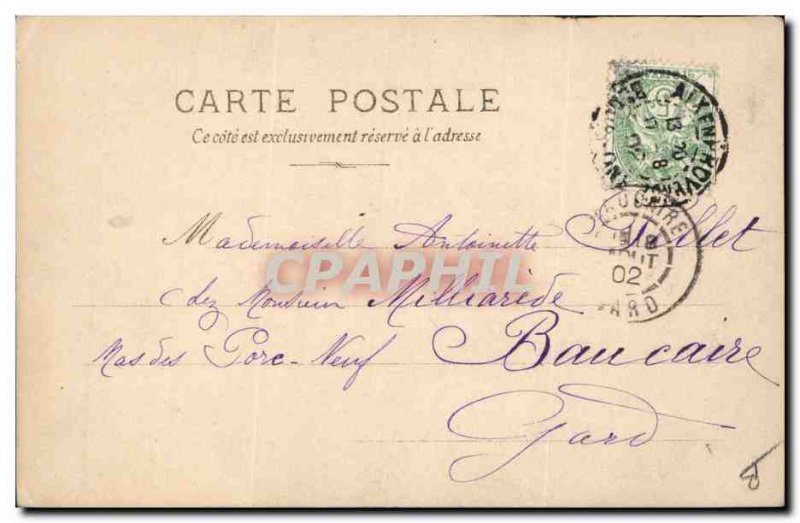 CARTE POSTALE
Ce côté est exclusivement réservé à l'adresse
AIX EN PROVENCE
13 20
8
BEAUCAIRE
AOUT
02
GARD
Mademoiselle Antoinette
chez Monsieur Milliarède
Mas des Porc-Neuf Baucaire
Gard
CPAPHIL